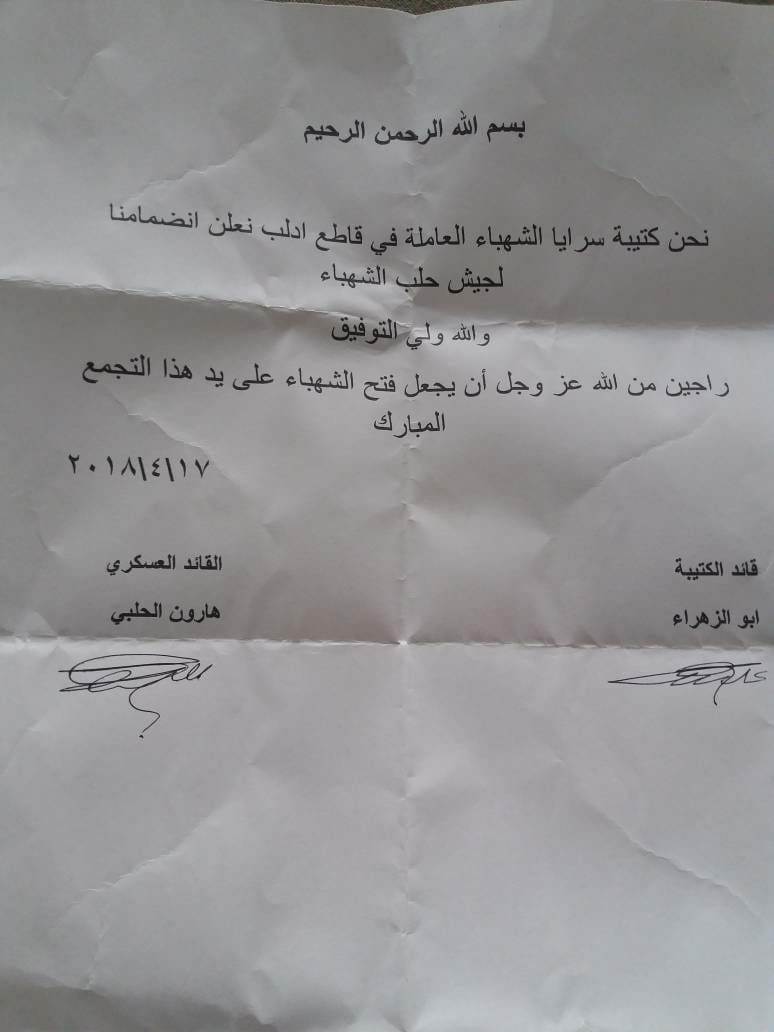 بسم الله الرحمن الرحيم
نحن كتيبة سرايا الشهباء العاملة في قاطع ادلب نعلن انضمامنا
لجيش حلب الشهباء
والله ولي التوفيق
راجين من الله عز وجل أن يجعل فتح الشهباء على يد هذا التجمع
المبارك
٢٠١٨\٤\١٧
قائد الكتيبة القائد العسكري
ابو الزهراء هارون الحلبي